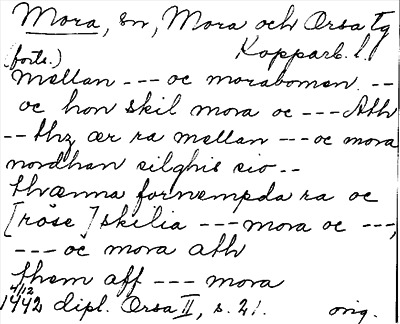 Mora, sn, Mora och Orsa tg
Kopparb. l.
(forts.)
mellan --- oc moraboman --
oc hon skil mora oc --- Ath
-- thz ær ra mellan --- oc mora
nordhan silghis sio --
thvænna fornempda ra oc
[röse] skilia --- mora oc ---,
--- oc mora ath
them aff --- mora
4/12
1442 dipl. Orsa II, s. 21. orig.